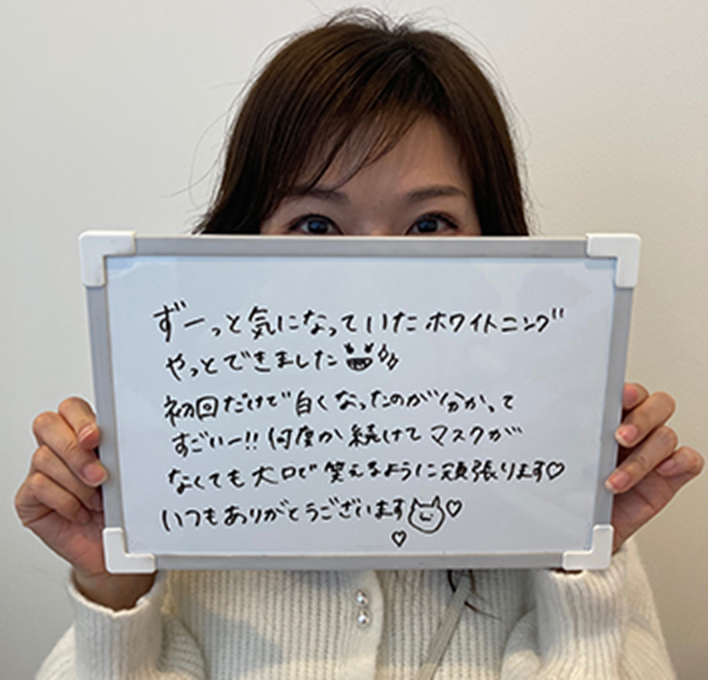 ずーっと気になっていたホワイトニング
やっとできました
初回だけで白くなったのが分かって
すごいー!!何度か続けてマスクが
なくても大口で笑えるように頑張ります♡
いつもありがとうございます♡
♡